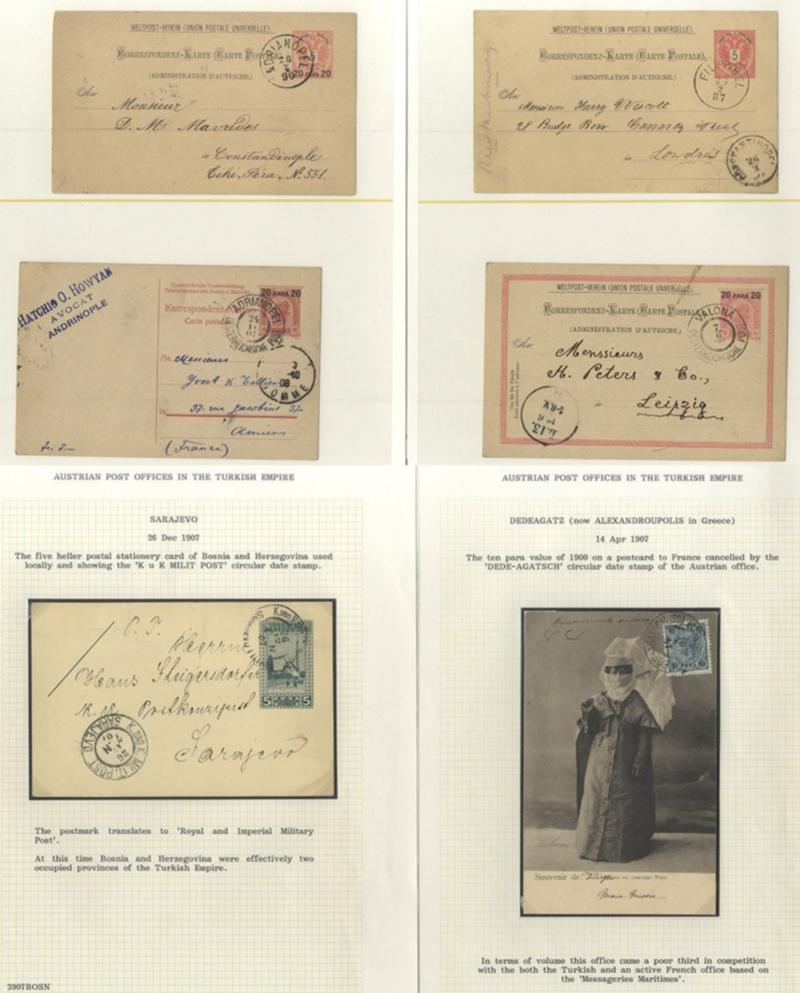 WELTPOST-VEREIN (UNION POSTALE UNIVERSELLE)
CORRESPONDENZ-KARTE (CARTE POSTALE)
(ADMINISTRATION D'AUTRICHE)
ADRIANOPEL
5
20 PARA 20
An
Monsieur
D. M. Mavrides
Constantinople
Péra, No. 551
WELTPOST-VEREIN (UNION POSTALE UNIVERSELLE)
CORRESPONDENZ-KARTE (CARTE POSTALE)
(ADMINISTRATION D'AUTRICHE)
5
87
An
Monsieur Harry Wescott
28 Budge Row
Londres
HATCHIG O. HOWYAN
AVOCAT
ANDRINOPLE
Korrespondenz-
Carte postale
20 PARA 20
ADRIANOPEL
An
Monsieur
37. rue 37
Amiens
(France)
WELTPOST-VEREIN (UNION POSTALE UNIVERSELLE)
CORRESPONDENZ-KARTE (CARTE POSTALE
(ADMINISTRATION D'AUTRICHE)
20 PARA 20
An
Menssieurs
A. Peters & Co.,
Leipzig
AUSTRIAN POST OFFICES IN THE TURKISH EMPIRE
SARAJEVO
26 Dec 1907
The five heller postal stationery card of Bosnia and Herzegovina used
locally and showing the 'K u K MILIT POST' circular date stamp.
5 5
Herrn
Hans Steigersdorfer
Sarajevo
K. UND K. MILIT. POST
SARAJEVO
The postmark translates to 'Royal and Imperial Military
Post'.
At this time Bosnia and Herzegovina were effectively two
occupied provinces of the Turkish Empire.
3907BOSN
AUSTRIAN POST OFFICES IN THE TURKISH EMPIRE
DEDEAGATZ (now ALEXANDROUPOLIS in Greece)
14 Apr 1907
The ten para value of 1900 on a postcard to France cancelled by the
'DEDE-AGATSCH' circular date stamp of the Austrian office.
Souvenir de
In terms of volume this office came a poor third in competition
with the both the Turkish and an active French office based on
the 'Messageries Maritimes'.